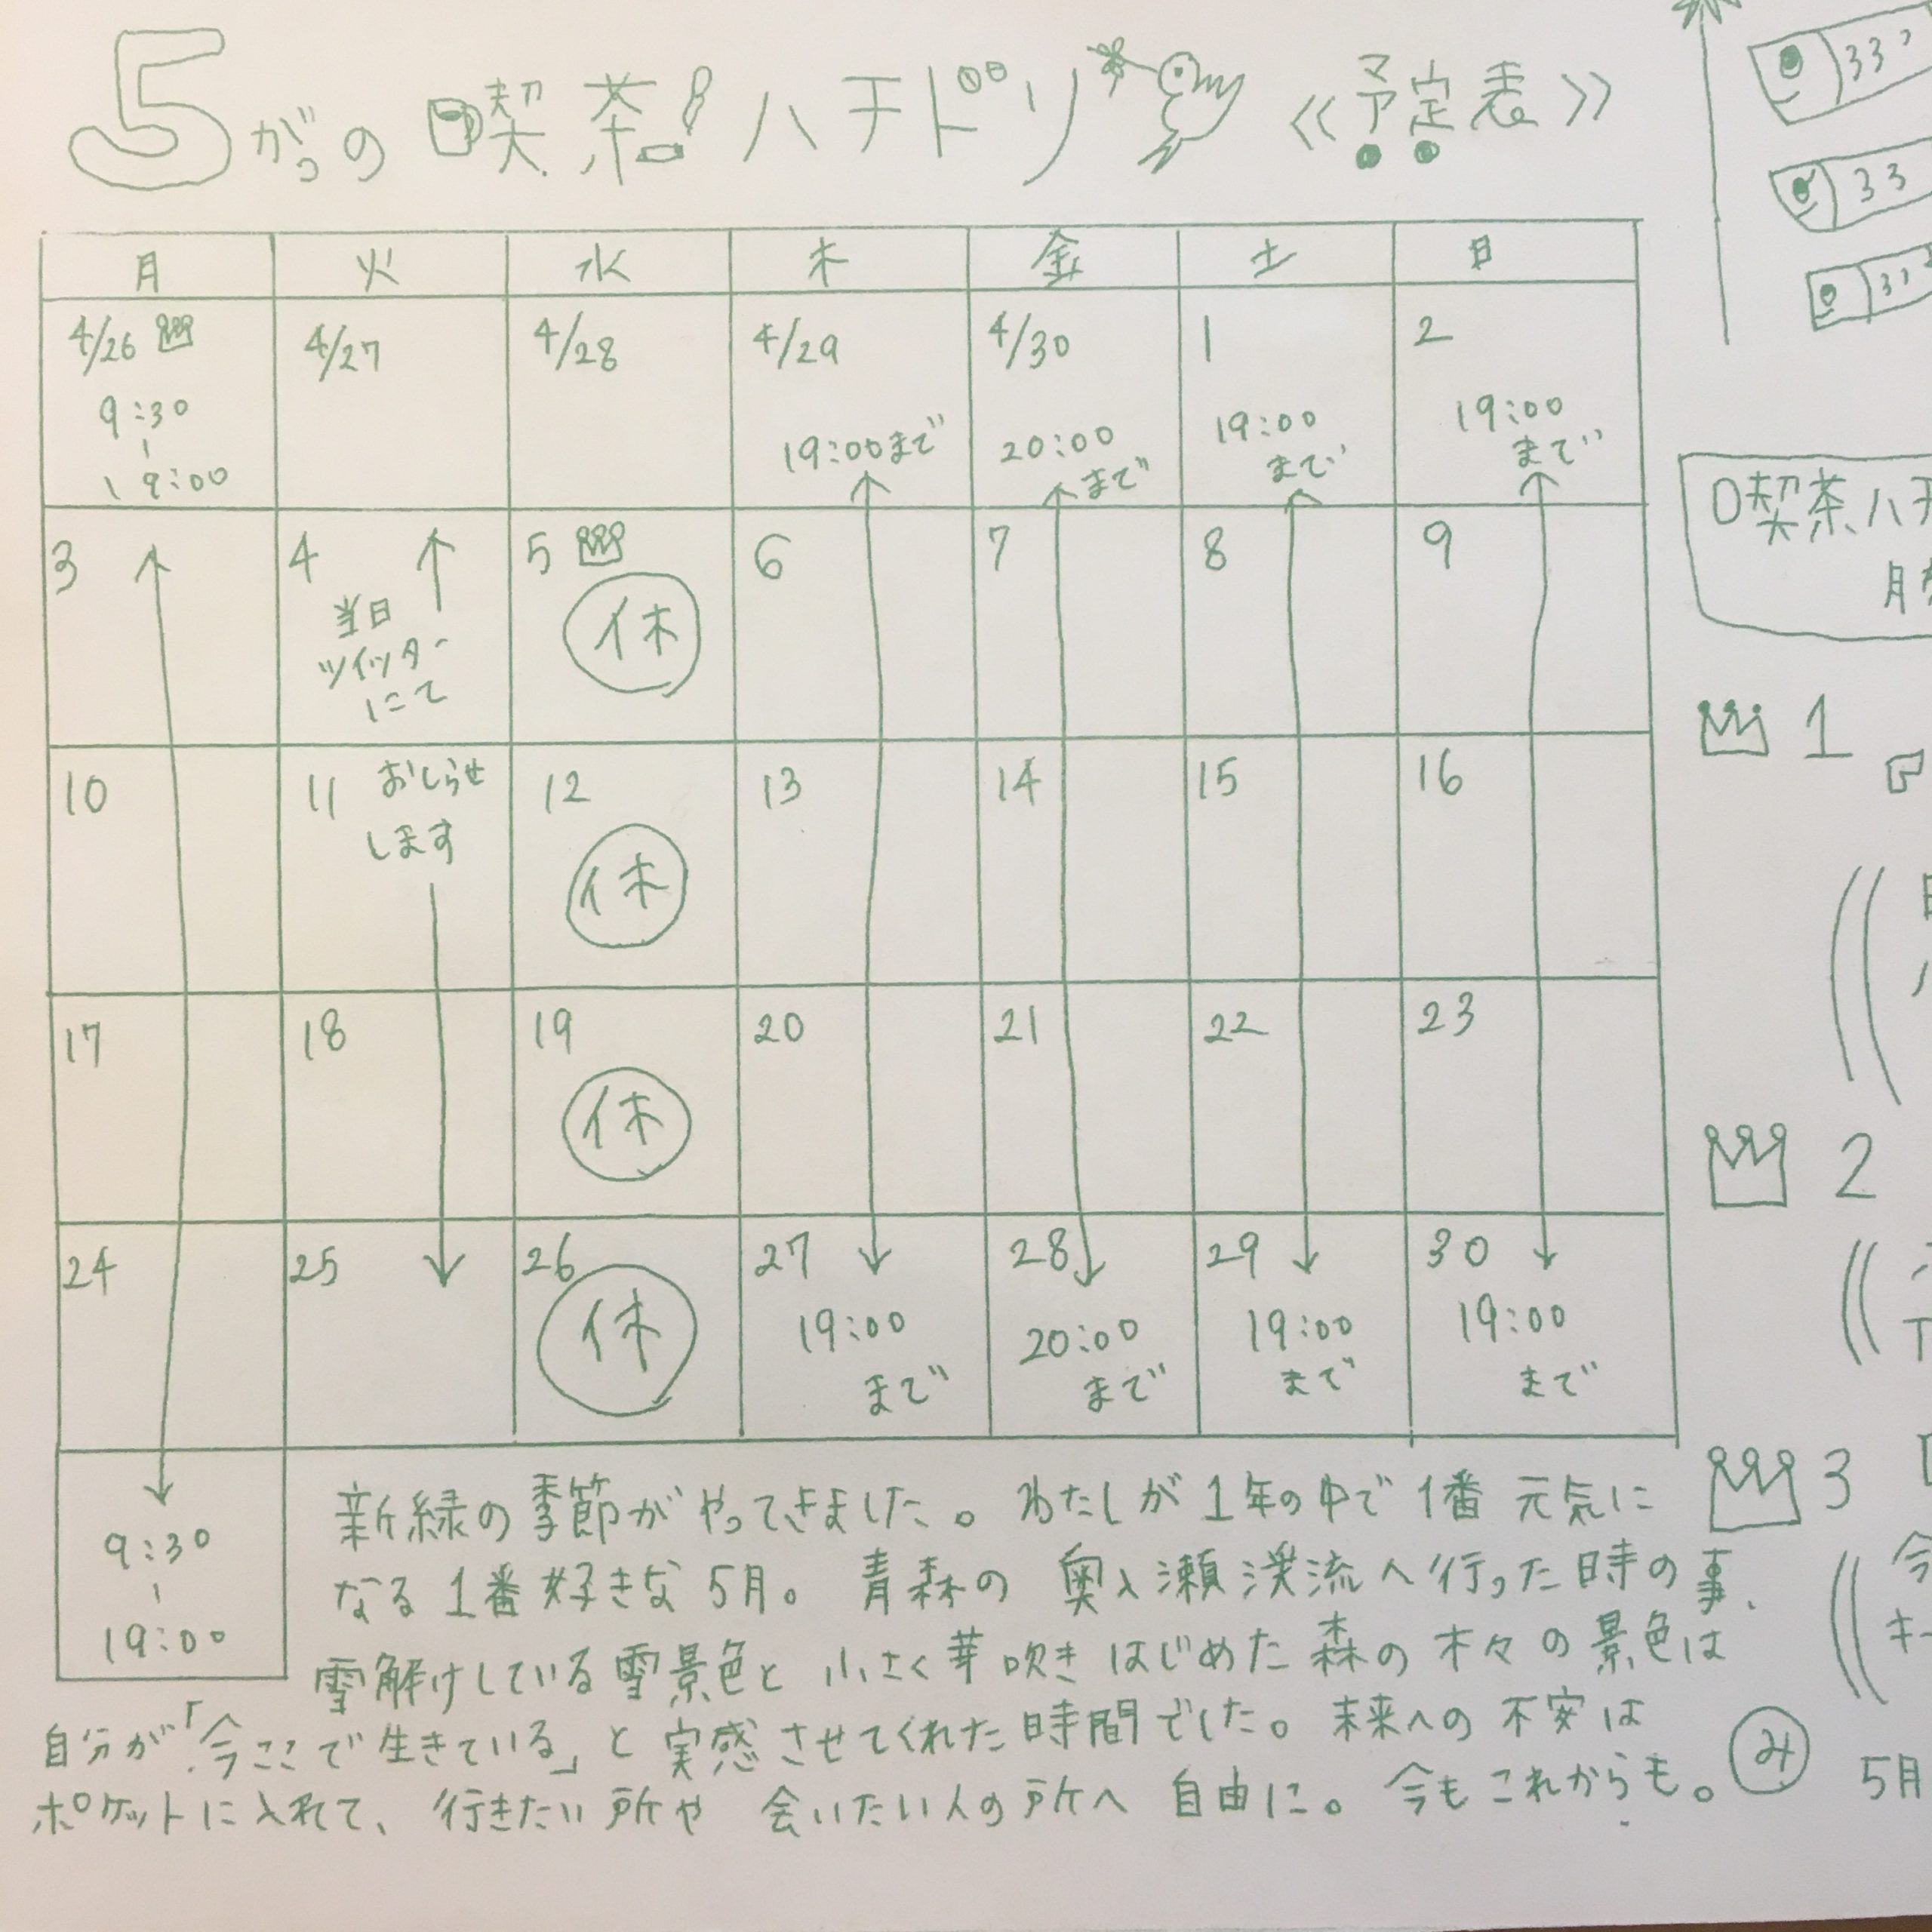 5がつの 喫茶ハチドリ 《予定表》
月 火 水 木 金 土 日
4/26 4/27 4/28 4/29 4/30 1 2
9:30
19:00
19:00まで
20:00
まで
19:00
まで
19:00
まで
3 4 5 6 7 8 9
当日
ツイッター
にて
休
10 11 12 13 14 15 16
おしらせ
します
休
17 18 19 20 21 22 23
休
24 25 26 27 28 29 30
休
19:00
まで
20:00
まで
19:00
まで
19:00
まで
9:30
19:00
新緑の季節がやってきました。わたしが1年の中で1番 元気に
なる1番好きな5月。青森の 奥入瀬渓流へ行った時の事、
雪解けしている雪景色と 小さく芽吹きはじめた森の木々の景色は
自分が「今ここで生きている」と実感させてくれた時間でした。未来への不安は
ポケットに入れて、行きたい所や 会いたい人の所へ 自由に。今もこれからも。み
喫茶ハチ
月
1
2
3
今
キー
5月